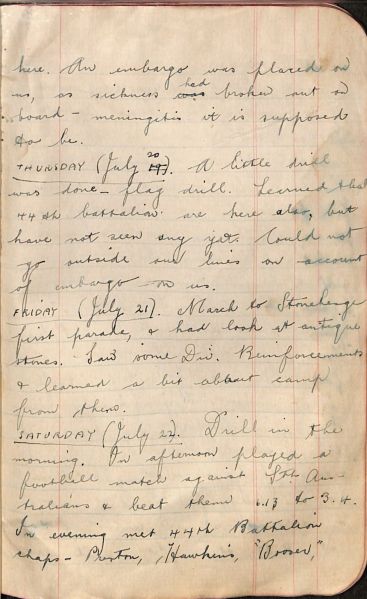 here. An embargo was placed on
us, as sickness was had broken out on
board - meningitis it is supposed
to be.
THURSDAY (July 19 20). A little drill
was done - flag drill. Learned that
44th battalion are here also, but
have not seen any yet. Could not
go outside our lines on account
of embargo on us.
FRIDAY (July 21). March to Stonehenge
first parade, & had look at antique
stones. Saw some Div. Reinforcements
& learned a bit about camp
from them.
SATURDAY (July 22. Drill in the
morning. In afternoon played a
football match against Sth Aus-
tralians & beat them 6.13 to 3.4.
In evening met 44th Battalion
chaps - Preston, Hawkins, "Booser",